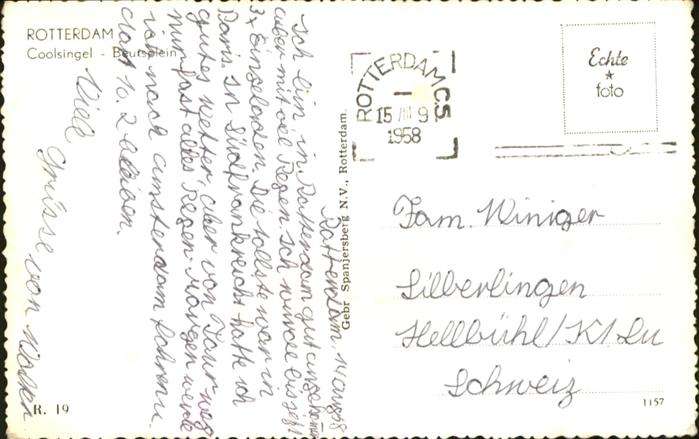 ROTTERDAM
Coolsingel - Beursplein
Rotterdam, 14 Aug. 58
Ich bin in Rotterdam gut angekommen
aber mit viel Regen Ich wurde bis jetzt
3x eingeladen. Die tollste war in
Paris. In Südfrankreich hatte ich
gutes Wetter, aber von Tour weg
nur fast alles Regen. Morgen werde
ich nach Amsterdam fahren u.
dort 10. 2 bleiben.
Viele
Grüsse von Walter
R. 19
Gebr Spanjersberg N.V., Rotterdam.
ROTTERDAM CS
15 VIII 9
1958
Echte
foto
Fam. Winiger
Silberlingen
Hellbühl/Kt Lu
Schweiz
1157